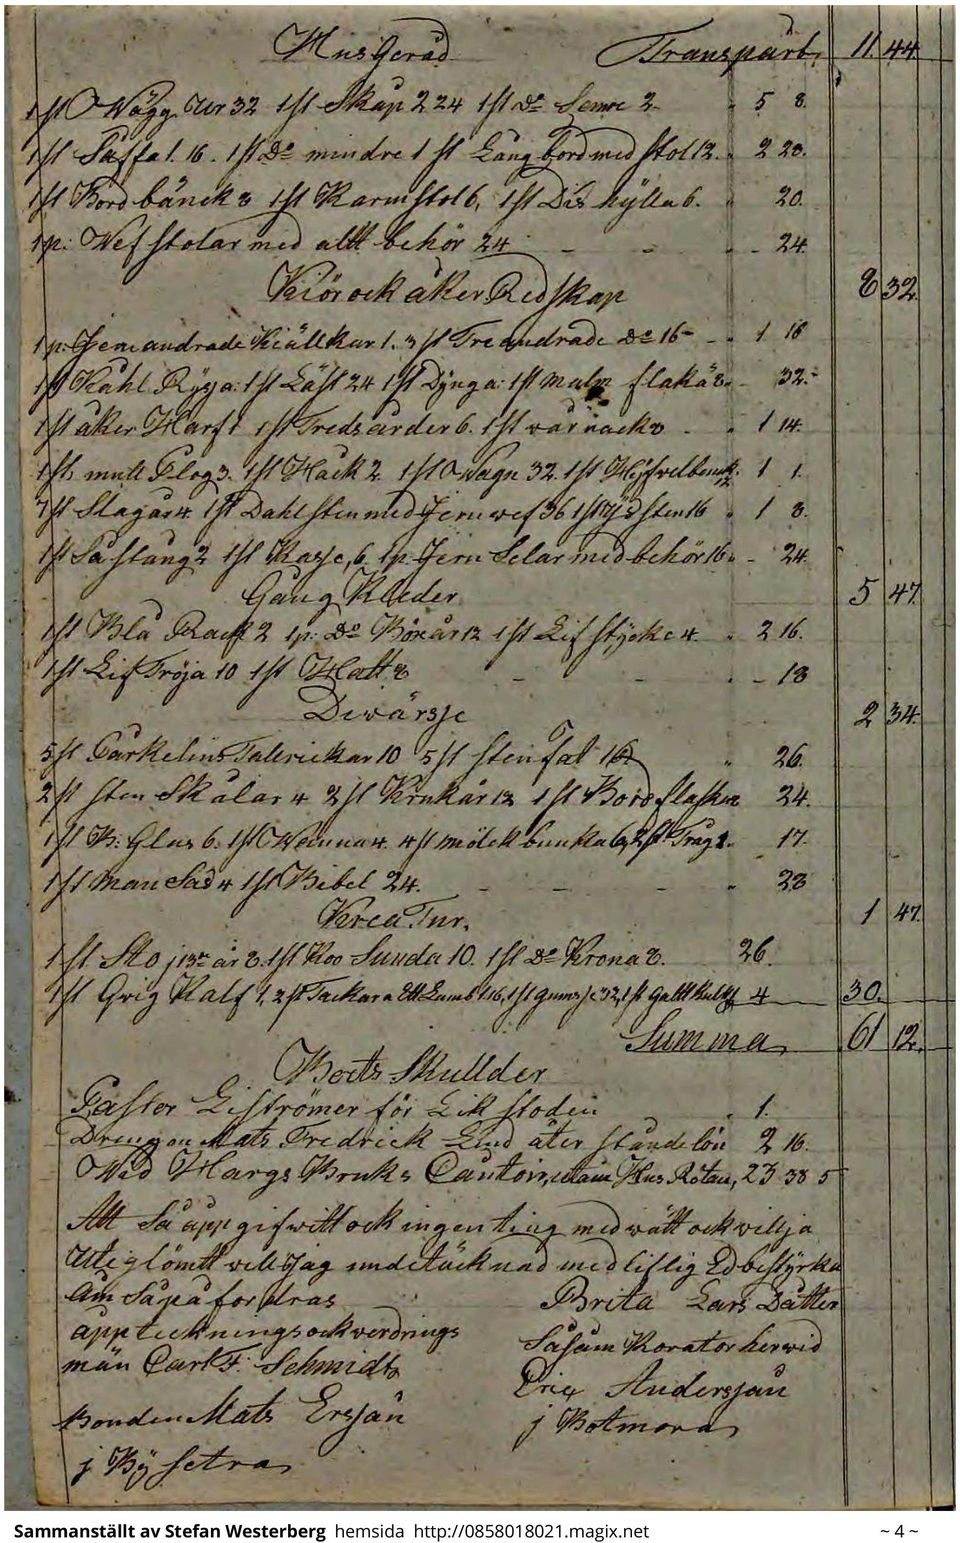 Husgeråd Transpart, 11. 44.
1 st Wägg Uer 32 1 st Skåp 2 24 1 st Do Semre 2 " 5 8.
1 st Saffa 1. 16. 1 st Do mindre 1 st Lång bord med stol 12. " 2 28.
1 st Bord bänck 8 1 st Karmstol 6, 1 st Dis hÿlla 6. " 20.
1 p: Wefstolar med allt behör 24 - - " - 24.
Kiör ock åker Redskap 8 32.
1 p: Jernandrade Kiällkar 1. 3 st Treandrade Do 16 - " 1 16
1 st Kåhl Rÿssa: 1 st Läst 24 1 st Dÿnga: 1 st malm flaka 8 " - 32.
1 st åker Harf 1 1 st Tredsårder 6. 1 st 8 - " 1 14.
1 st mull Plog 3. 1 st Hack 2. 1 st Wagn 32. 1 st Hÿfvelbenck 12 1 1.
7 st Slagar 4 1 st Dahlsten med Jernwef 36 1 st sten 16 " 1 8.
1 st Såstång 2 1 st Kasse, 6, 1 p Jern Selar med behör 16 " - 24.
Gång Kleder 5 47.
1 st Blå Rack 2 1 p: Do Böxår 12 1 st Lifstÿcke 4 " 2 16.
1 st Lif Tröja 10 1 st Hatt 8 - - " - 18
Diwärsse 2 34.
5 st Parkelins Talerickar 10 5 st sten fat 16 " 26.
2 st sten Skålar 4 2 st Krukår 12 1 st Bordflaska 24.
1 st B: Glas 6. 1 st Wanna 4. 4 st miölck bunka 6, 2 st Tråg 1. " 17.
1 st man Sad 4 1 st Bibel 24. - - - " 28
Krea Tur. 1 47.
1 st Sto j 13de år 8. 1 st Koo Sunda 10. 1 st Do Krona 8. 26.
1 st Qvig Kalf 1, 2 st Tackar a Ett Lamb 1 16, 1 st gumse 32, 1 st galt 4 30.
Summa 61 12.
Borts Skullder
Pastor Liströmer för Lik stoden " 1.
Drengen Mats Fredrick Lind åter stånde lön 2 16.
Wid Hargs Bruks Cantoir, utam Hus Rötan, 23 38 5
Att Så uppgifwitt ock ingen ting med wätt ock willja
Uteglömtt vell Jag undetäcknad med liflig Ed bestÿrka
Am Så på fordras Brita Lars Datter
appteckningsock verdrings Såsam Korator herwid
män Carl F: Schmidt Eric Anderssan
Bonden Mats Erssan j Botmora
j Bÿ setra
Sammanställt av Stefan Westerberg hemsida http://0858018021.magix.net ~ 4 ~